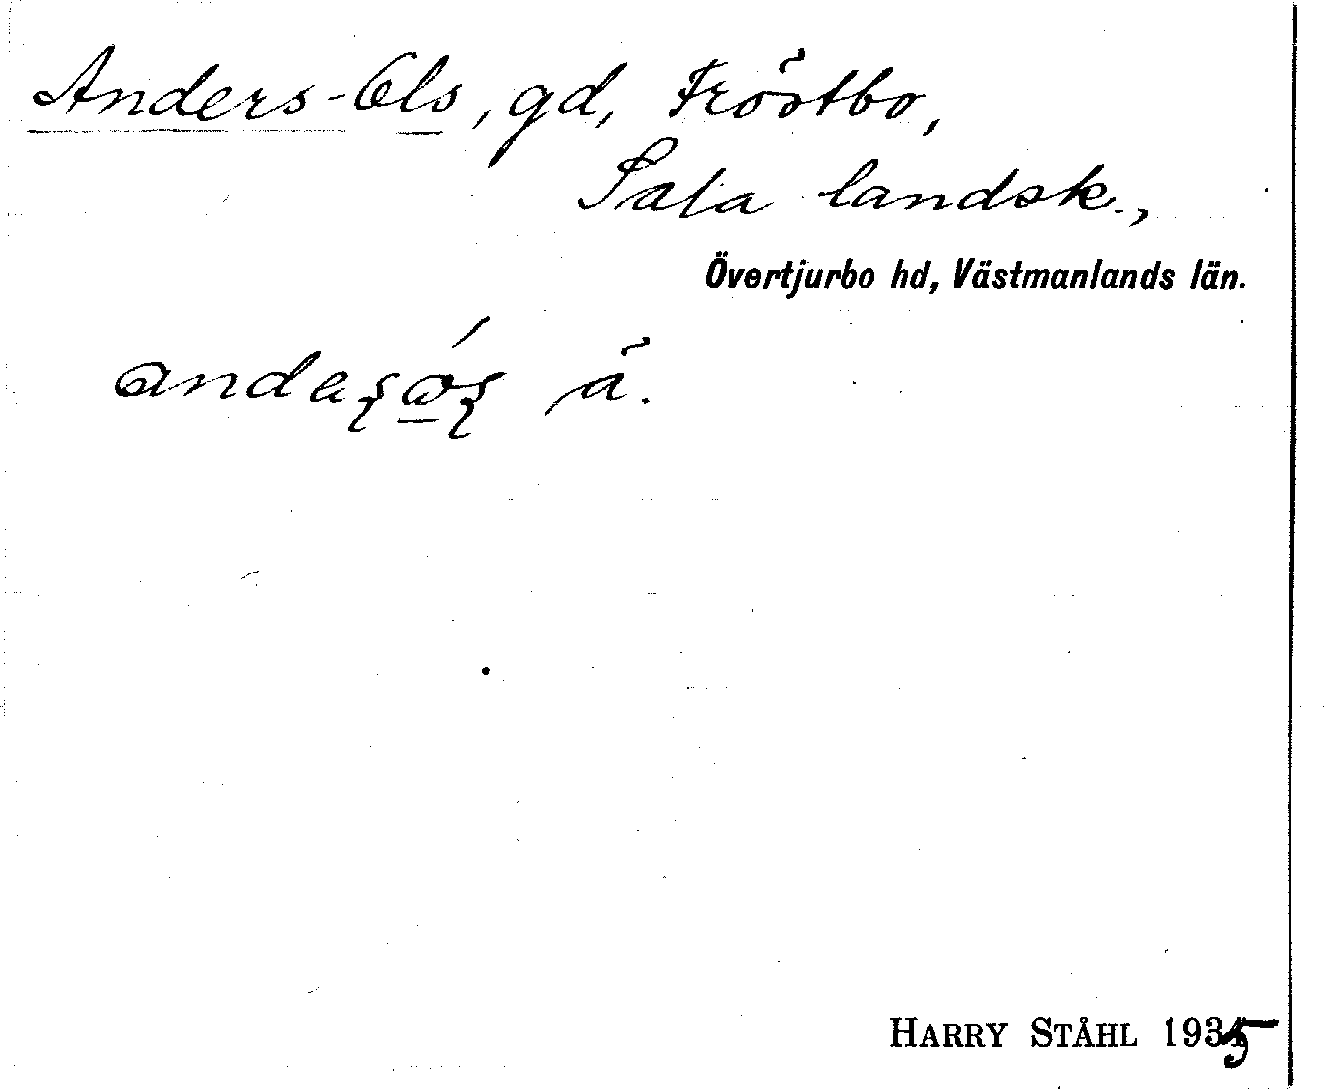 Anders-Ols, gd, Fröstbo,
Sala landsk.,
Övertjurbo hd, Västmanlands län.
å.
HARRY STÅHL 1935